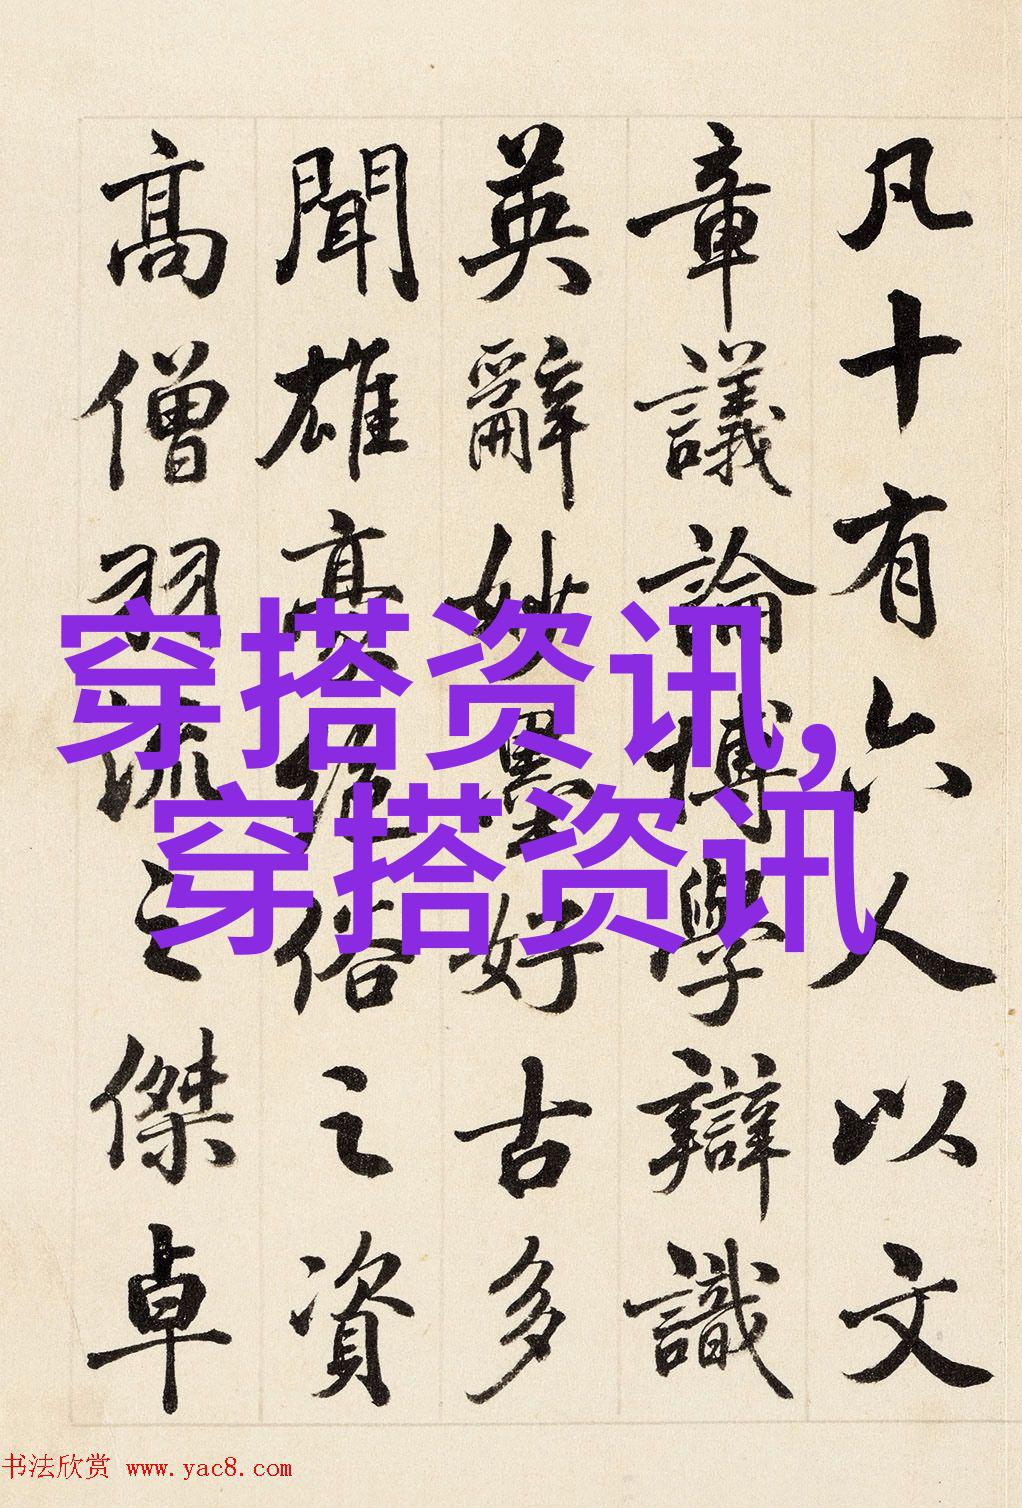 凡十有六人以文
章議論博學辯識
英辭妙墨好古多
聞雄豪絕俗之資
高僧羽流之傑卓
穿搭资讯,
穿搭资讯
书法欣赏 www.yac8.com